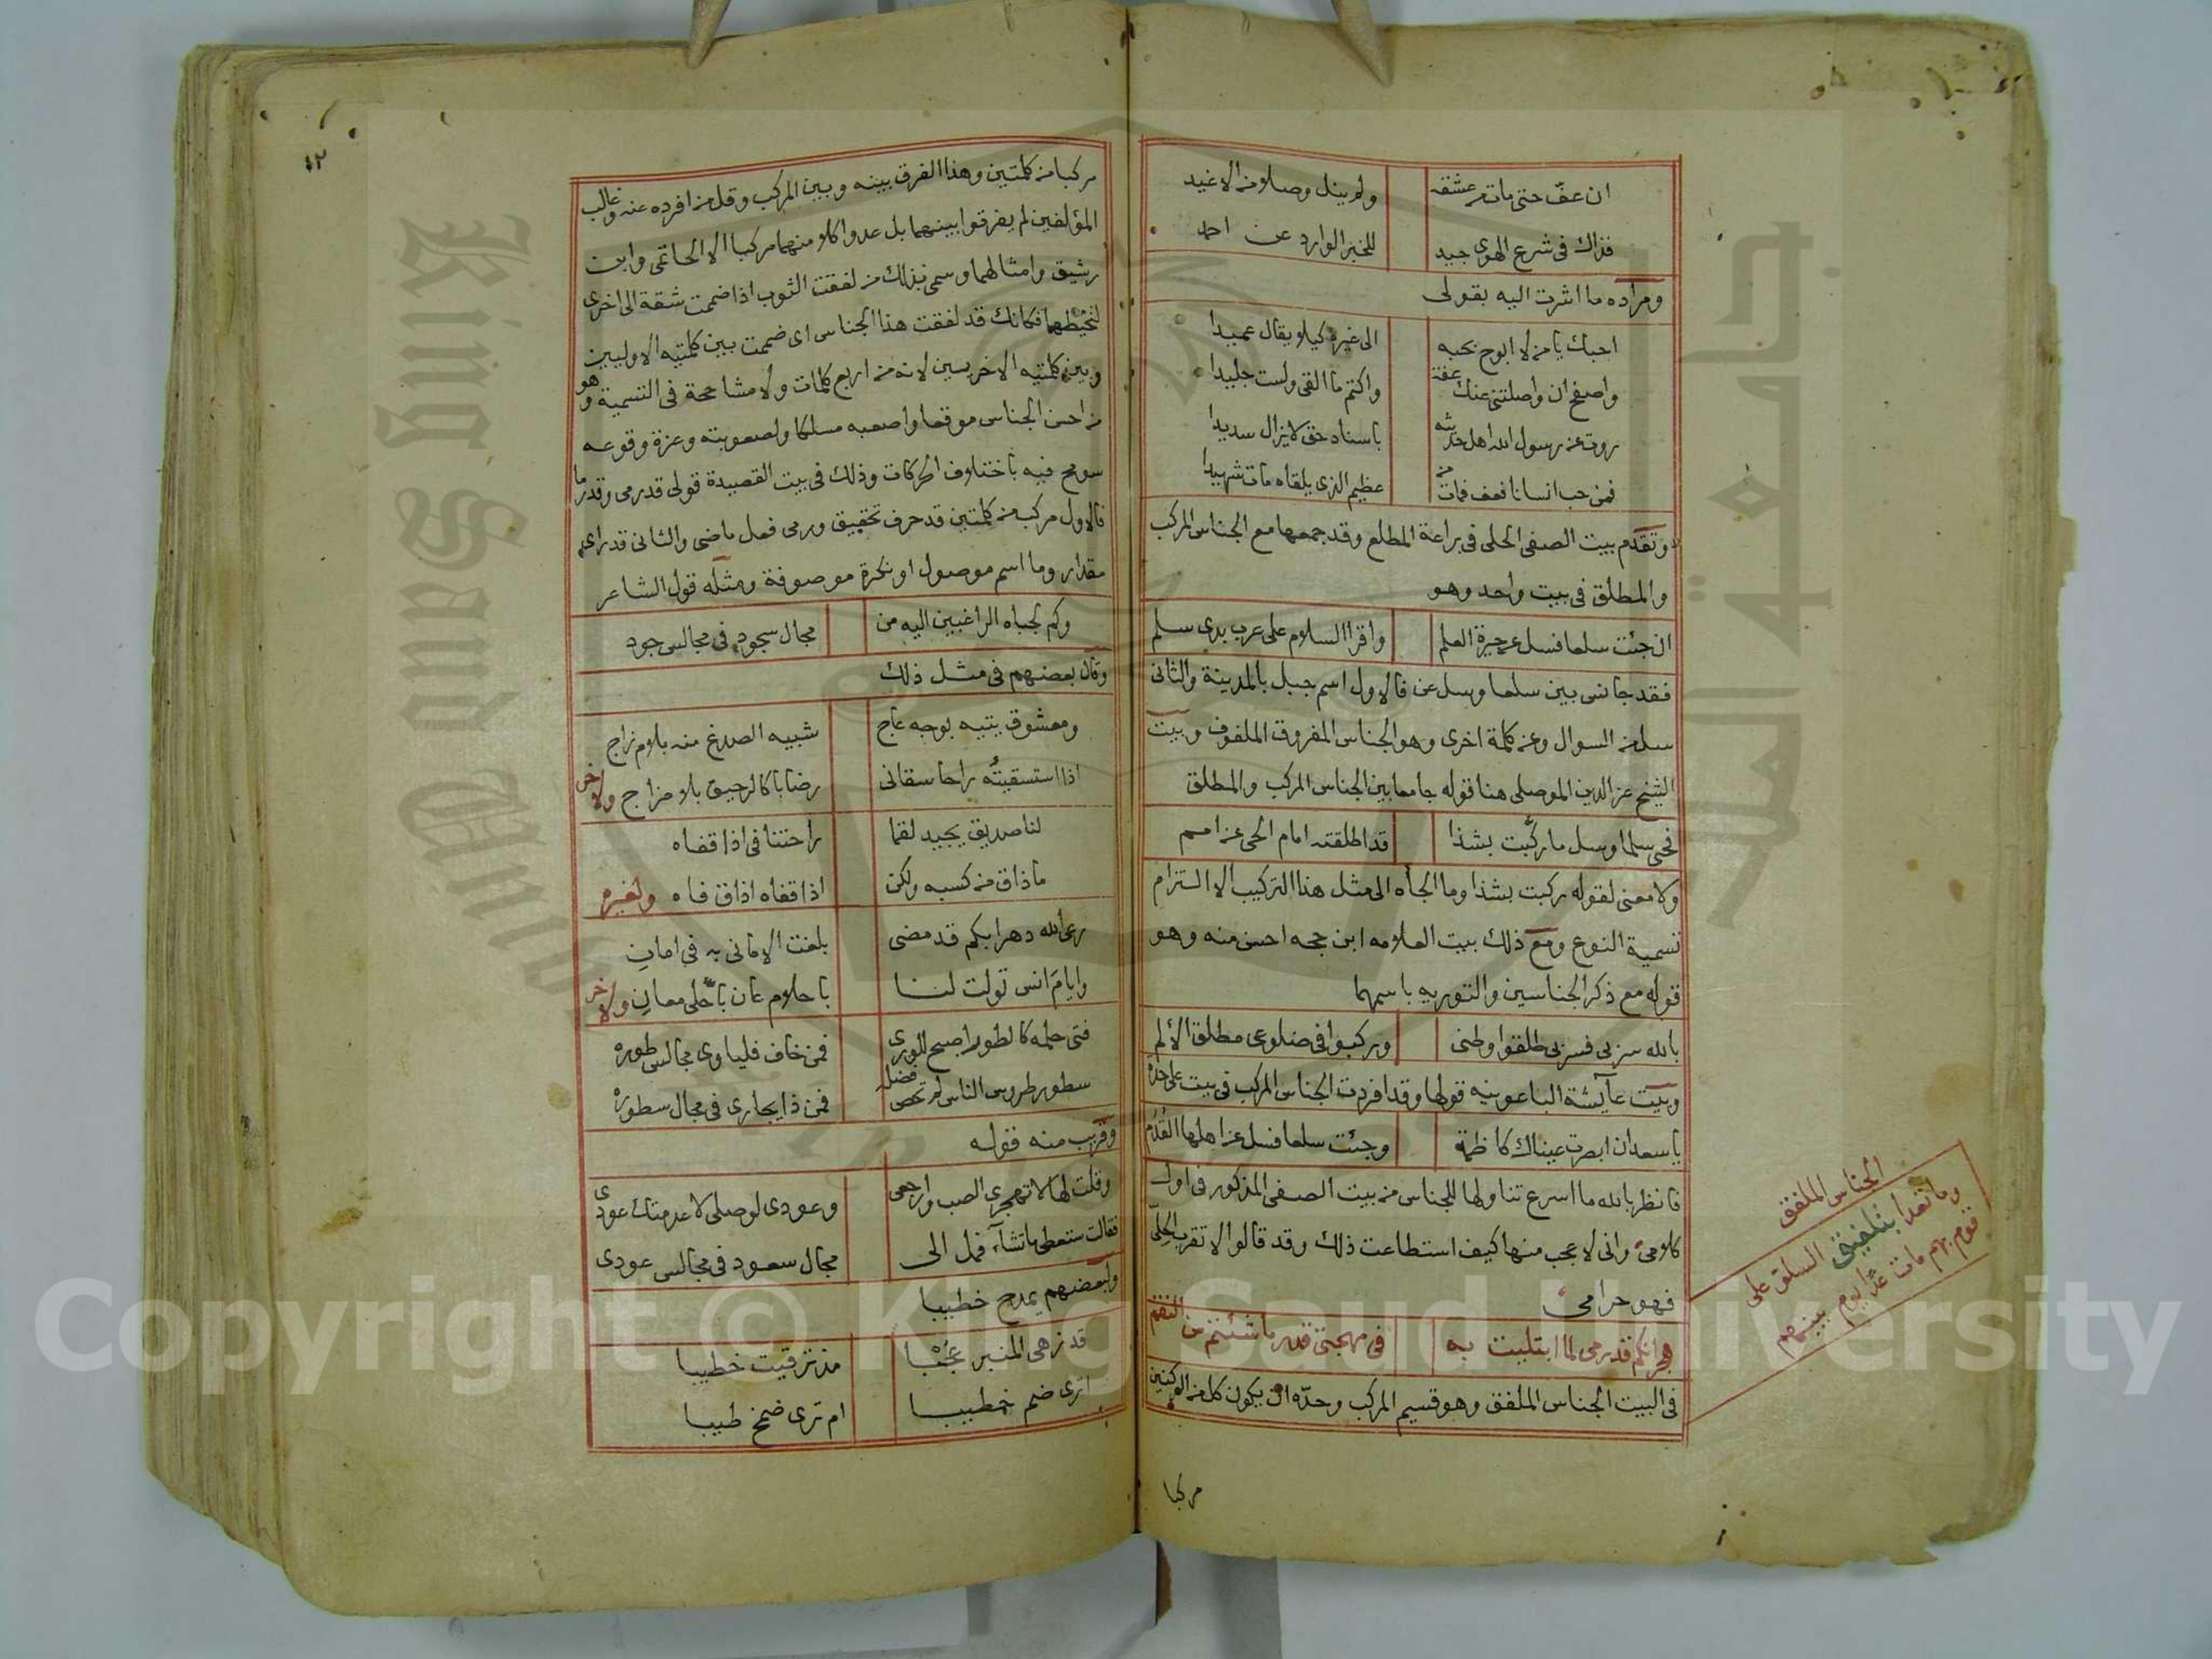 ان عف حتى مات من عشقه ولم ينل وصلا من الاغيد
فذاك في شرع الهوى جيد للخبر الوارد عن احمد
ومراده ما اشرت اليه بقولي
احبك يا من لا ابوح بحبه الى غيره كيلا يقال عميدا
واصفح ان واصلتني عنك عفة واكتم ما القى ولست جليدا
روت عن رسول الله اهل حديثه باسناد حق لا يزال سديدا
فمن حب انسانا فعف فمات من عظيم الذي يلقاه مات شهيدا
وتقدم بيت الصفي الحلي في براعة المطلع وقد جمعها مع الجناس المركب
والمطلق في بيت واحد وهو
ان جئت سلعا فسل عن جيرة العلم واقرا السلام على عرب بذي سلم
فقد جانس بين سلعا وسل عن فالاول اسم جبل بالمدينة والثاني
سل من السوال وعن كلمة اخرى وهو الجناس المفروق الملفوف وبيت
الشيخ عز الدين الموصلي هنا قوله جامعا بين الجناس المركب والمطلق
فحي سلما وسل ما ركبت بشذا قد اطلقته امام الحي عن امم
ولا معنى لقوله ركبت بشذا وما الجأه الى مثل هذا التركيب الا التزام
تسمية النوع ومع ذلك بيت العلامه ابن حجه احسن منه وهو
قوله مع ذكر الجناسين والتوريه باسمهما
بالله سر بي فسربي طلقوا وطني وركبوا في ضلوعي مطلق الألم
وبيت عآيشة الباعونيه قولها وقد افردت الجناس المركب في بيت على حدة
يا سعد ان ابصرت عيناك كاظمة وجئت سلعا فسل عن اهلها القدم
فانظر بالله ما اسرع تناولها للجناس من بيت الصفي المذكور في اول
كلامي واني لاعجب منها كيف استطاعت ذلك وقد قالوا لا تقرب الحلي
فهو حرامي
هجرانكم قد رمى لما ابتليت به في مهجتي قدر ما شئتم من النقم
في البيت الجناس الملفق وهو قسيم المركب وحده ان يكون كل من الركنين
مركبا
الجناس الملفق
السلو على
١٢
مركبا من كلمتين وهذا الفرق بينه وبين المركب وقل من افرده عنه وغالب
المؤلفين لم يفرقوا بينهما بل عدوا كلا منهما مركبا الا الحاتمي وابن
رشيق وامثالهما وسمي بذلك من لفقت الثوب اذا ضممت شقة الى اخرى
لتخيطهما فكانك قد لفقت هذا الجناس اى ضممت بين كلمتيه الاوليين
وبين كلمتيه الاخريين لانه من اربع كلمات ولا مشاححة في التسمية وهو
من احسن الجناس موقعا واصعبه مسلكا ولصعوبته وعزة وقوعه
سومح فيه باختلاف الحركات وذلك في بيت القصيدة قولي قد رمى وقدر ما
فالاول مركب من كلمتين قد حرف تحقيق ورمى فعل ماضي والثاني قدر اي
مقدار وما اسم موصول او نكرة موصوفة ومثله قول الشاعر
وكم لجباه الراغبين اليه من مجال سجود في مجالس جود
وقال بعضهم في مثل ذلك
ومعشوق يتيه بوجه عاج شبيه الصدغ منه بلام زاج
اذا استسقيته راحا سقاني رضابا كالرحيق بلا مزاج ولاخر
لنا صديق يجيد لقما راحتنا في اذا قفاه
ما ذاق من كسبه ولكن اذا قفاه اذاق فاه ولغيره
رعى الله دهرا بكم قد مضى بلغت الاماني به في امان
وايام انس تولت لنا باحلام عان باحلى معان ولاخر
فتى حلمه كالطور اصبح للورى فمن خاف فلياوى مجالس طوره
سطور طروس الناس لم تحص فضله فمن ذا يجارى في مجال سطوره
وقريب منه قوله
وقلت لها لا تهجري الصب وارجعي وعودي لوصلي لا عدمتك عودي
فقالت ستعطى ما تشآء فمل الى مجال سعود في مجالس عودي
ولبعضهم يمدح خطيبا
قد زهى المنبر عجبا مذ ترقيت خطيبا
اترى ضم خطيبا ام ترى ضمخ طيبا
Copyright © King Saud University
King Saud University